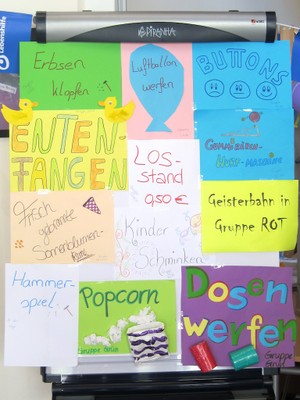 PIRANHA
Lebenshilfe
Erbsen
klopfen
Luftballon
werfen
BUTTONS
ENTEN-
FANGEN
LOS-
stand
0,50 €
Geisterbahn in
Gruppe ROT
Frisch
gebrannte
Sonnenblumen-
Kinder
Schminken
Hammer-
spiel
Popcorn
Gruppe Grün
Dosen
werfen
Gruppe